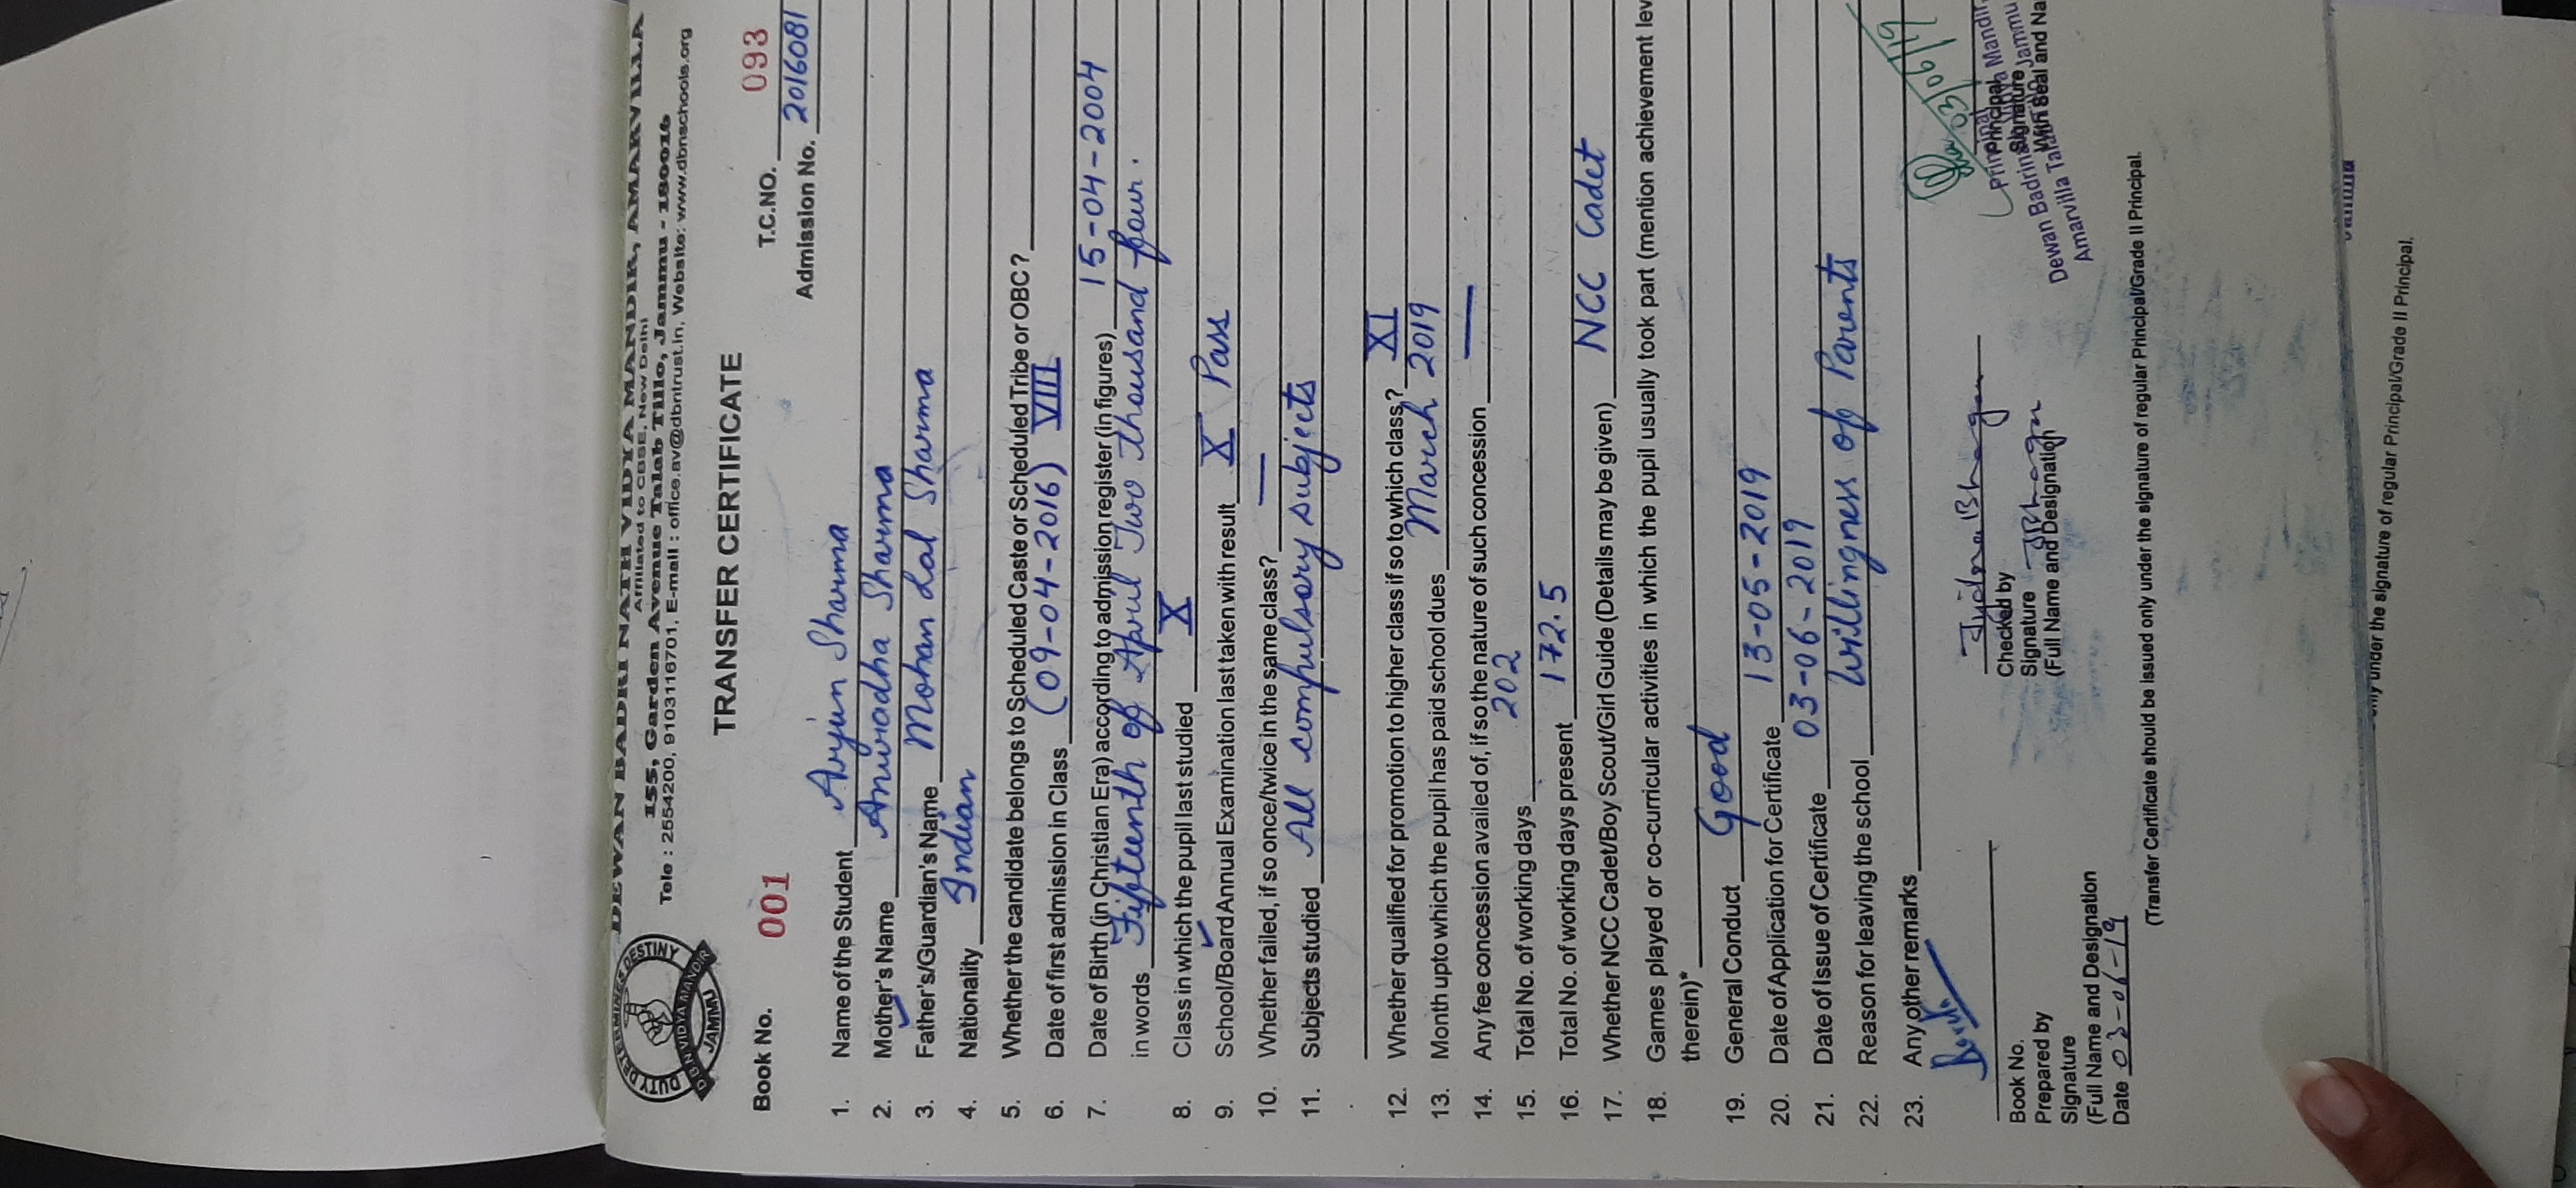 DEWAN BADRI NATH VIDYA MANDIR, AMARVILLA
Affiliated to CBSE, New Delhi
155, Garden Avenue Talab Tillo, Jammu - 180016
Tele : 2554200, 9103116701, E-mail : office.av@dbntrust.in, Website: www.dbnschools.org
DUTY DETERMINES DESTINY
D.B.N VIDYA MANDIR
JAMMU
TRANSFER CERTIFICATE
Book No. 001 T.C.NO. 093
Admission No. 2016081
1. Name of the Student Arjun Sharma
2. Mother's Name Anuradha Sharma
3. Father's/Guardian's Name Mohan Lal Sharma
4. Nationality Indian
5. Whether the candidate belongs to Scheduled Caste or Scheduled Tribe or OBC?
6. Date of first admission in Class (09-04-2016) VIII
7. Date of Birth (in Christian Era) according to admission register (in figures) 15-04-2004
in words Fifteenth of April Two thousand four.
8. Class in which the pupil last studied X
9. School/Board Annual Examination last taken with result X Pass
10. Whether failed, if so once/twice in the same class? —
11. Subjects studied All compulsory subjects
12. Whether qualified for promotion to higher class if so to which class? XI
13. Month upto which the pupil has paid school dues March 2019
14. Any fee concession availed of, if so the nature of such concession —
15. Total No. of working days 202
16. Total No. of working days present 172.5
17. Whether NCC Cadet/Boy Scout/Girl Guide (Details may be given) NCC Cadet
18. Games played or co-curricular activities in which the pupil usually took part (mention achievement lev
therein)*
19. General Conduct Good
20. Date of Application for Certificate 13-05-2019
21. Date of Issue of Certificate 03-06-2019
22. Reason for leaving the school Willingness of Parents
23. Any other remarks
03/06/19
Book No.
Prepared by
Signature
(Full Name and Designation
Date 03-06-19
Checked by
Signature
(Full Name and Designation
Principal
Signature
With Seal and Na
Principal
Dewan Badrinath Vidya Mandir
Amarvilla Talab Tillo Jammu
(Transfer Certificate should be issued only under the signature of regular Principal/Grade II Principal.
only under the signature of regular Principal/Grade II Principal.